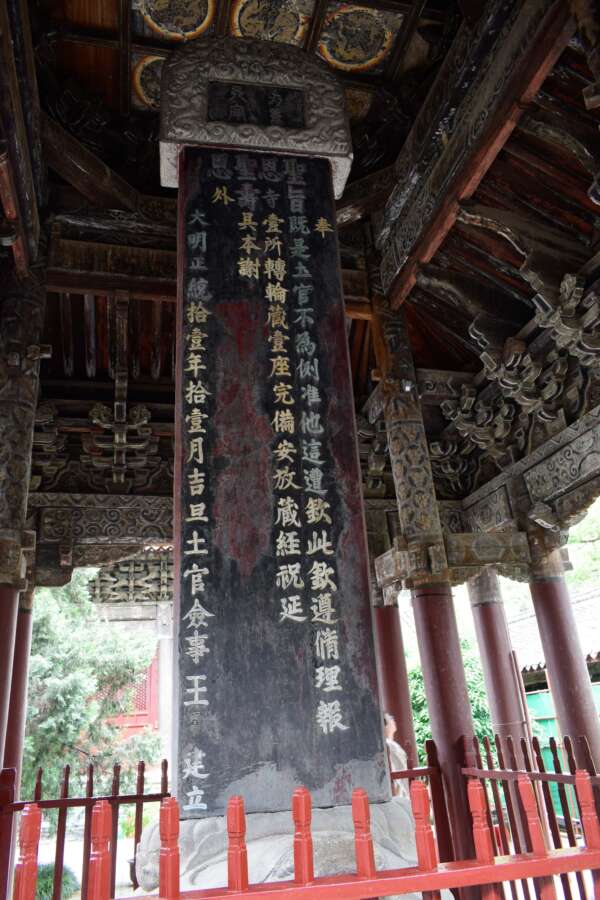 奉
聖旨既是土官不為例准他這遭欽此欽遵脩理報
恩寺壹所轉輪藏壹座完備安放藏經祝延
聖壽具本謝
恩外
大明正統拾壹年拾壹月吉旦土官僉事王 建立